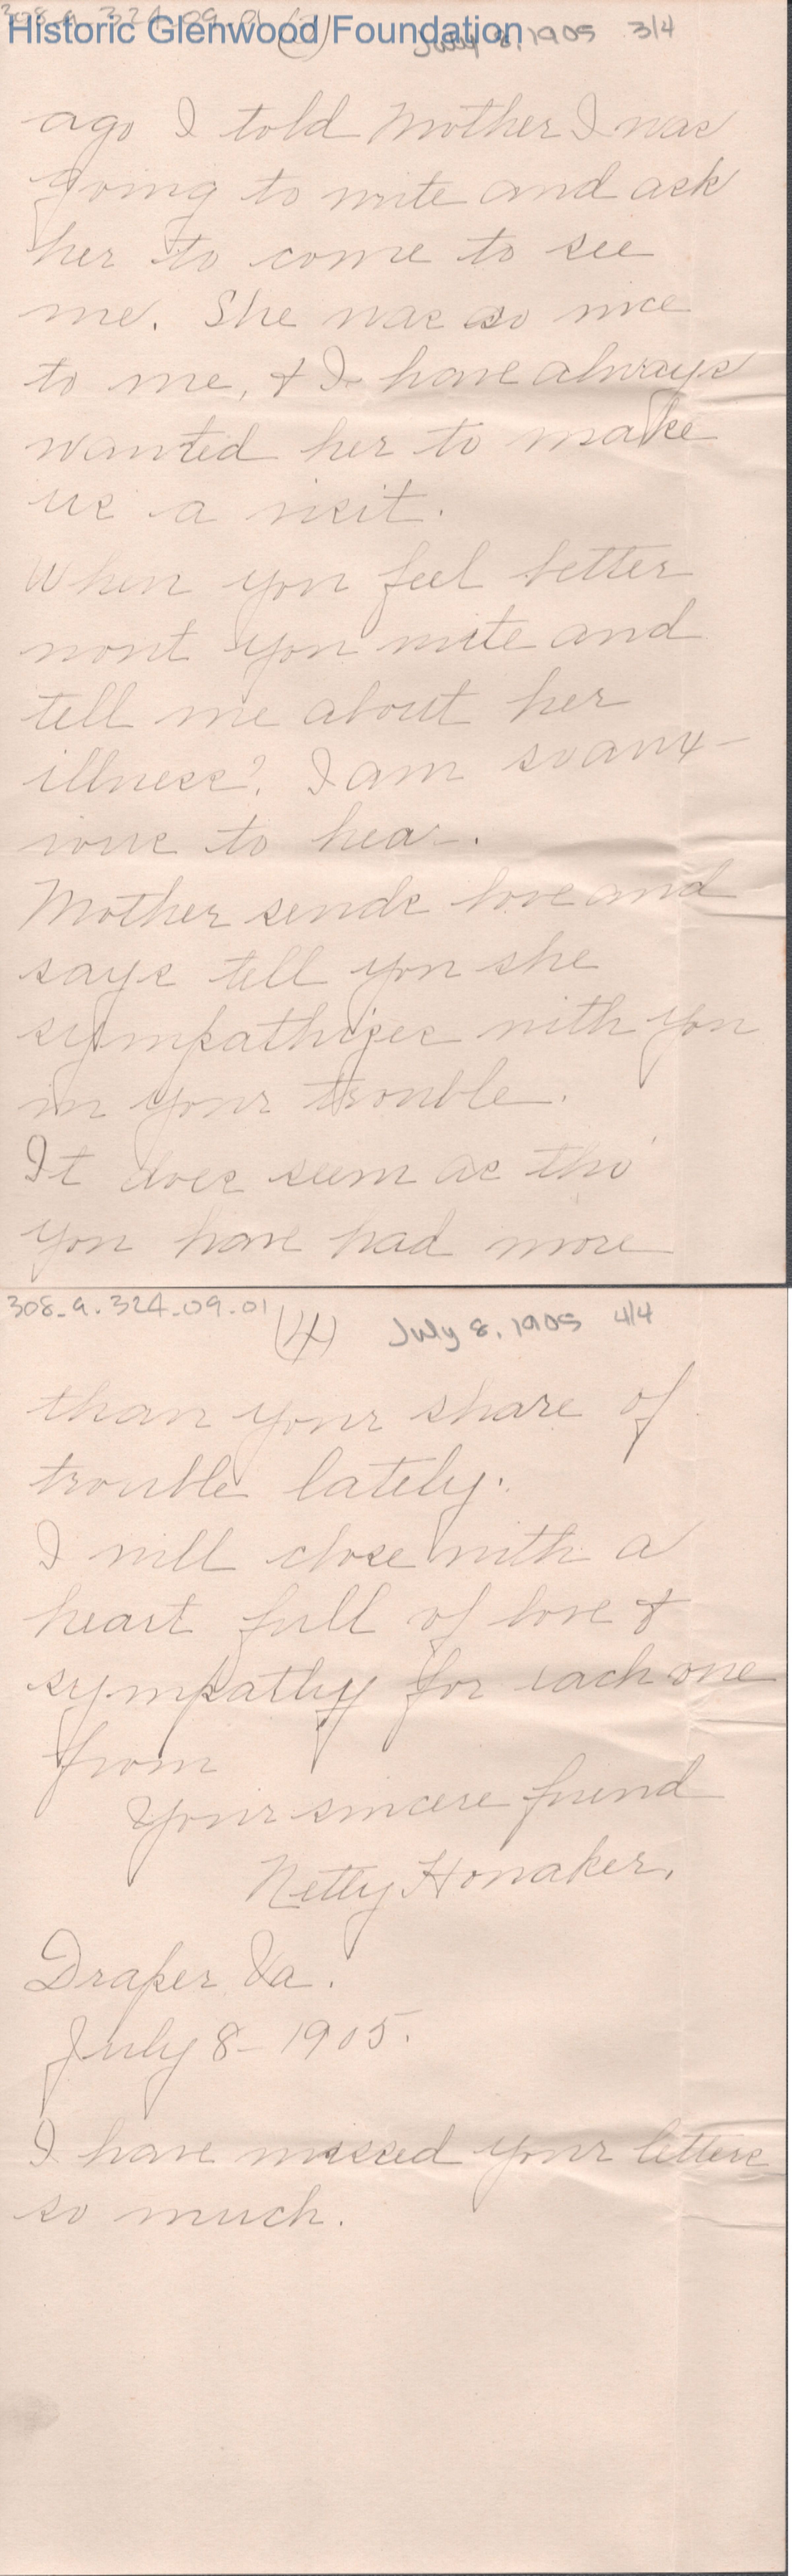 308-a-324-09-01 (3) July 8, 1905 3/4
Historic Glenwood Foundation
ago I told Mother I was
going to write and ask
her to come to see
me. She was so nice
to me, & I have always
wanted her to make
us a visit.
When you feel better
wont you write and
tell me about her
illness? I am so anx-
ious to hear.
Mother sends love and
says tell you she
sympathizes with you
in your trouble.
It does seem as tho'
you have had more
308-a.324-09-01 (4) July 8, 1905 4/4
than your share of
trouble lately.
I will close with a
heart full of love &
sympathy for each one
from
Your sincere friend
Netty Honaker.
Draper Va.
July 8 - 1905.
I have missed your letters
so much.